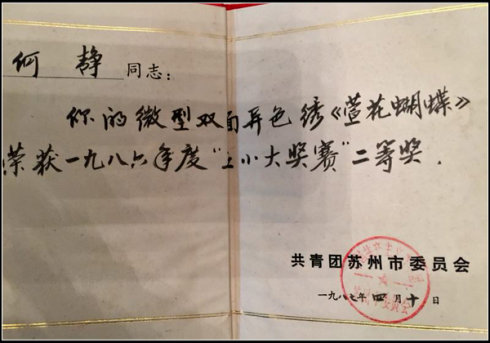 何静同志：
你的微型双面异色绣《萱花蝴蝶》
荣获一九八六年度“五小大奖赛”二等奖．
共青团苏州市委员会
一九八七年四月十日